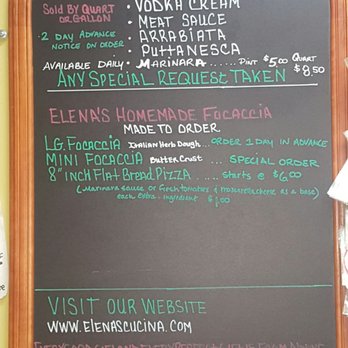 SOLD BY QUART OR GALLON
• VODKA CREAM
• MEAT SAUCE
• 2 DAY ADVANCE NOTICE ON ORDER
• ARRABIATA
• PUTTANESCA
AVAILABLE DAILY • MARINARA ...... PINT $5.00 QUART $8.50
ANY SPECIAL REQUEST TAKEN
ELENA'S HOMEMADE FOCACCIA
MADE TO ORDER
LG. FOCACCIA Italian Herb Dough... ORDER 1 DAY IN ADVANCE
MINI FOCACCIA Butter Crust ... SPECIAL ORDER
8" INCH FLAT BREAD PIZZA ..... starts @ $6.00
(Marinara sauce or fresh tomatoes &
as a base)
each extra - ingredient $1.00
VISIT OUR WEBSITE
WWW.ELENASCUCINA.COM